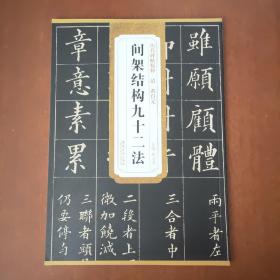 雖願顧體
兩平者左
三合者中
清 黄自元
间架结构九十二法
二段者上
微加饒減
章意素累
三聯者頭
仍要停勻